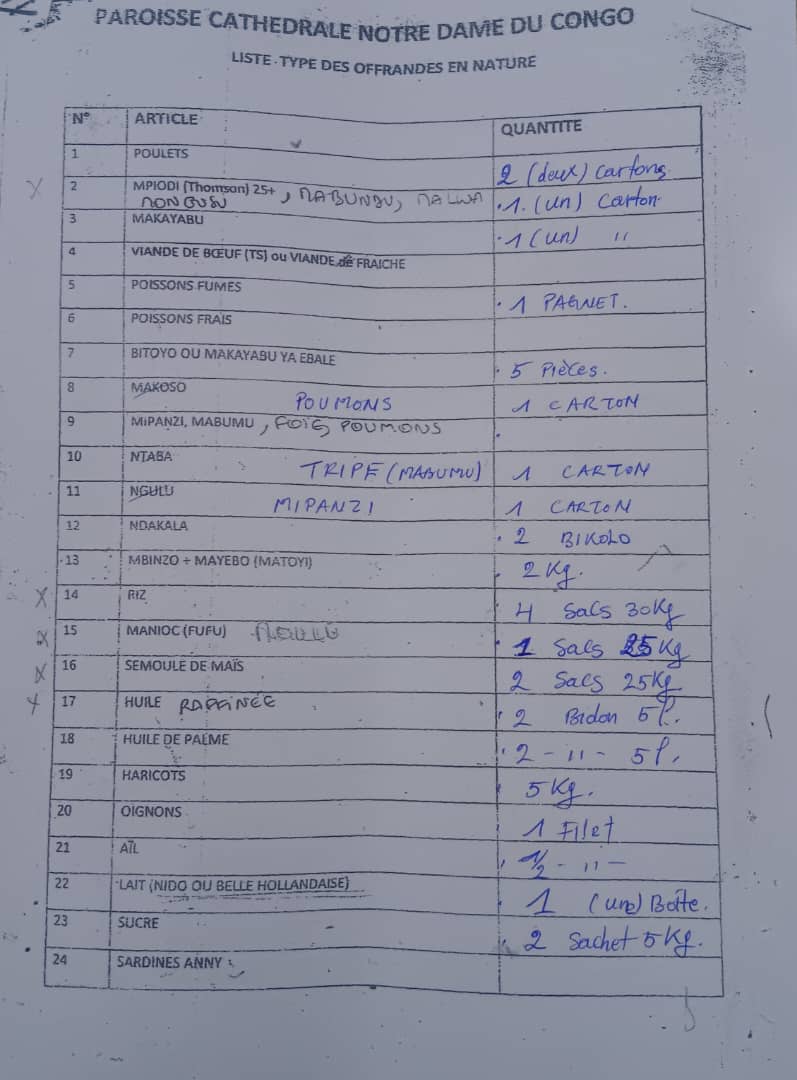 PAROISSE CATHEDRALE NOTRE DAME DU CONGO
LISTE-TYPE DES OFFRANDES EN NATURE
N° ARTICLE QUANTITE
1 POULETS 2 (deux) cartons
2 MPIODI (Thomson) 25+, MABUNDU, MALWA 1 (un) Carton
NON GUSU
3 MAKAYABU 1 (un) "
4 VIANDE DE BŒUF (TS) ou VIANDE de FRAICHE
5 POISSONS FUMES 1 PAGNET.
6 POISSONS FRAIS
7 BITOYO OU MAKAYABU YA EBALE 5 Pièces.
8 MAKOSO POUMONS 1 CARTON
9 MIPANZI, MABUMU, FOIE, POUMONS
10 NTABA TRIPE (MABUMU) 1 CARTON
11 NGULU MIPANZI 1 CARTON
12 NDAKALA 2 BIKOLO
13 MBINZO + MAYEBO (MATOYI) 2 Kg.
X 14 RIZ 4 Sacs 30Kg
X 15 MANIOC (FUFU) 1 Sacs 25Kg
X 16 SEMOULE DE MAÏS 2 Sacs 25Kg
X 17 HUILE RAFFINÉE 2 Bidon 5l.
18 HUILE DE PALME 2 - " - 5l.
19 HARICOTS 5 Kg.
20 OIGNONS 1 Filet
21 AÏL 1/2 - " -
22 LAIT (NIDO OU BELLE HOLLANDAISE) 1 (une) Boîte.
23 SUCRE 2 Sachet 5 Kg.
24 SARDINES ANNY